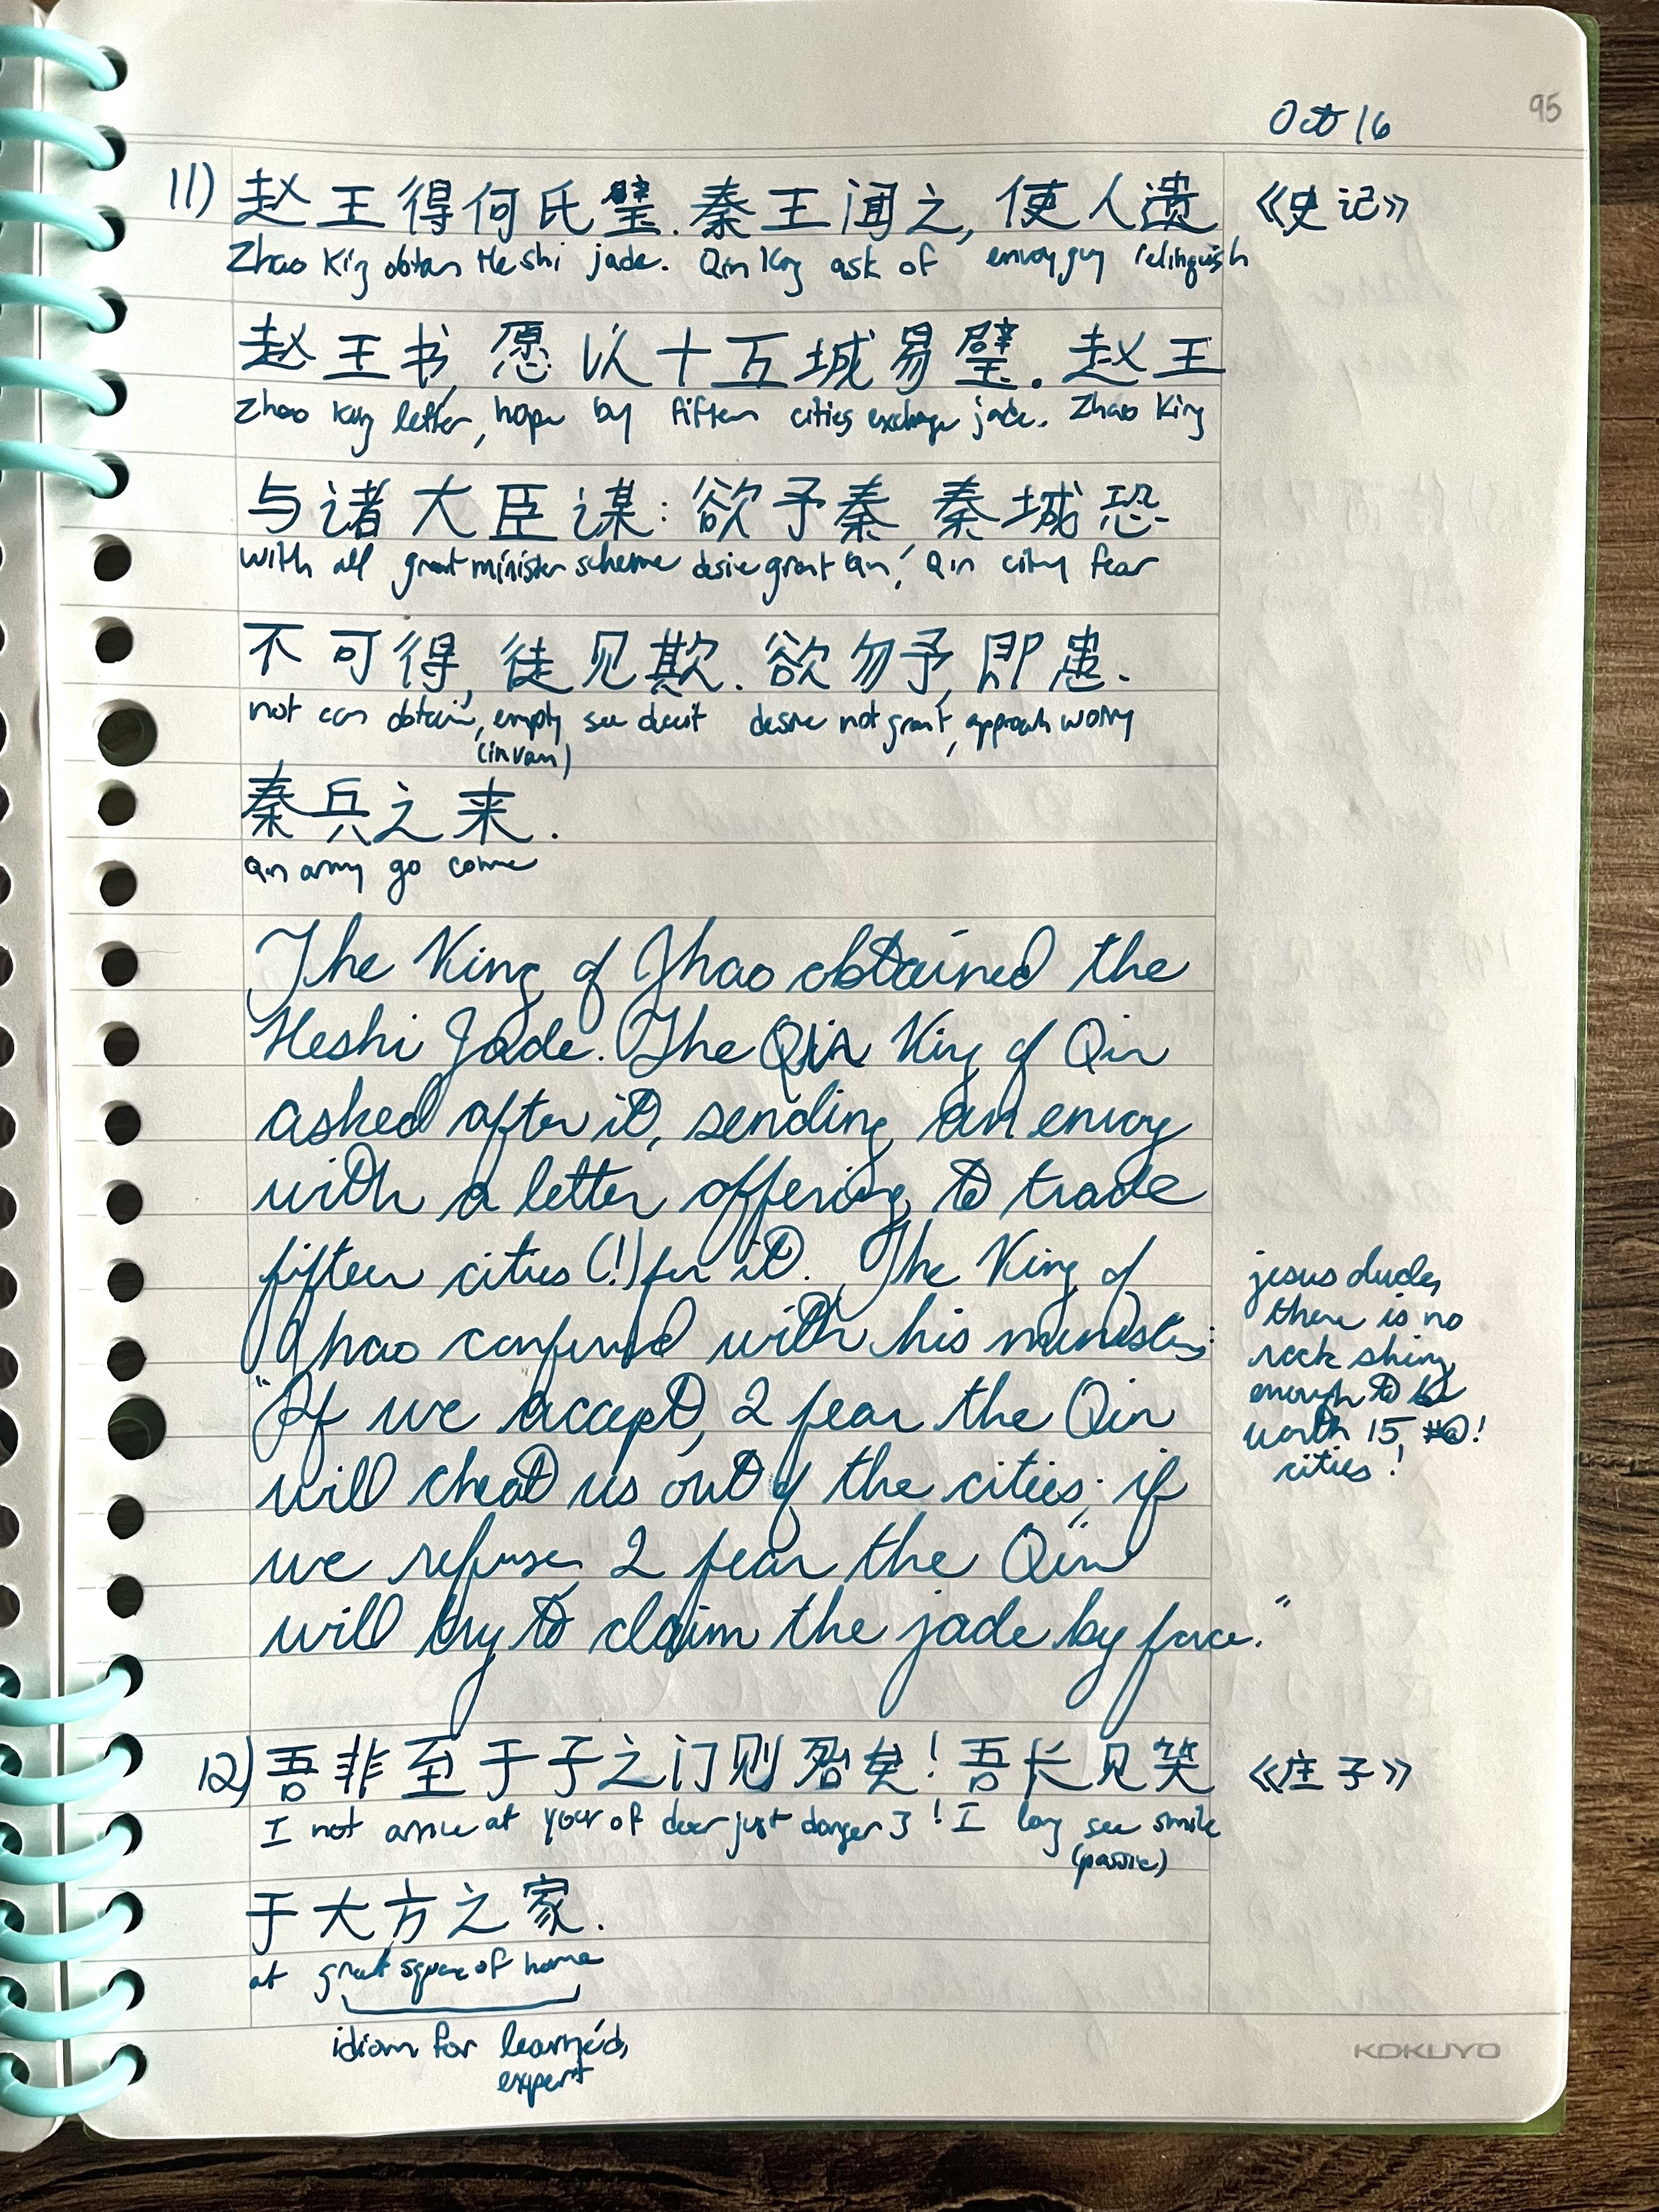 95
Oct 16
11) 赵王得何氏璧. 秦王闻之, 使人遗 《史记》
Zhao King obtain Heshi jade. Qin King ask of envoy guy relinquish
赵王书, 愿以十五城易璧. 赵王
Zhao King letter, hope by fifteen cities exchange jade. Zhao King
与诸大臣谋: 欲予秦, 秦城恐
with all great minister scheme desire grant Qin, Qin city fear
不可得, 徒见欺. 欲勿予, 即患.
not can obtain, empty see deceit desire not grant, approach worry
(in vain)
秦兵之来.
Qin army go come
The King of Zhao obtained the
Heshi Jade. The Qin King of Qin
asked after it, sending an envoy
with a letter offering to trade
fifteen cities (!) for it. The King of
Zhao conferred with his ministers:
"If we accept, I fear the Qin
will cheat us out of the cities; if
we refuse, I fear the Qin
will try to claim the jade by force."
jesus dude,
there is no
rock shiny
enough to be
worth 15 #@!
cities!
12) 吾非至于子之门则殆矣! 吾长见笑 《庄子》
I not arrive at your of door just danger 了! I long see smile
(passive)
于大方之家.
at great square of home
idiom for learned,
expert
KOKUYO